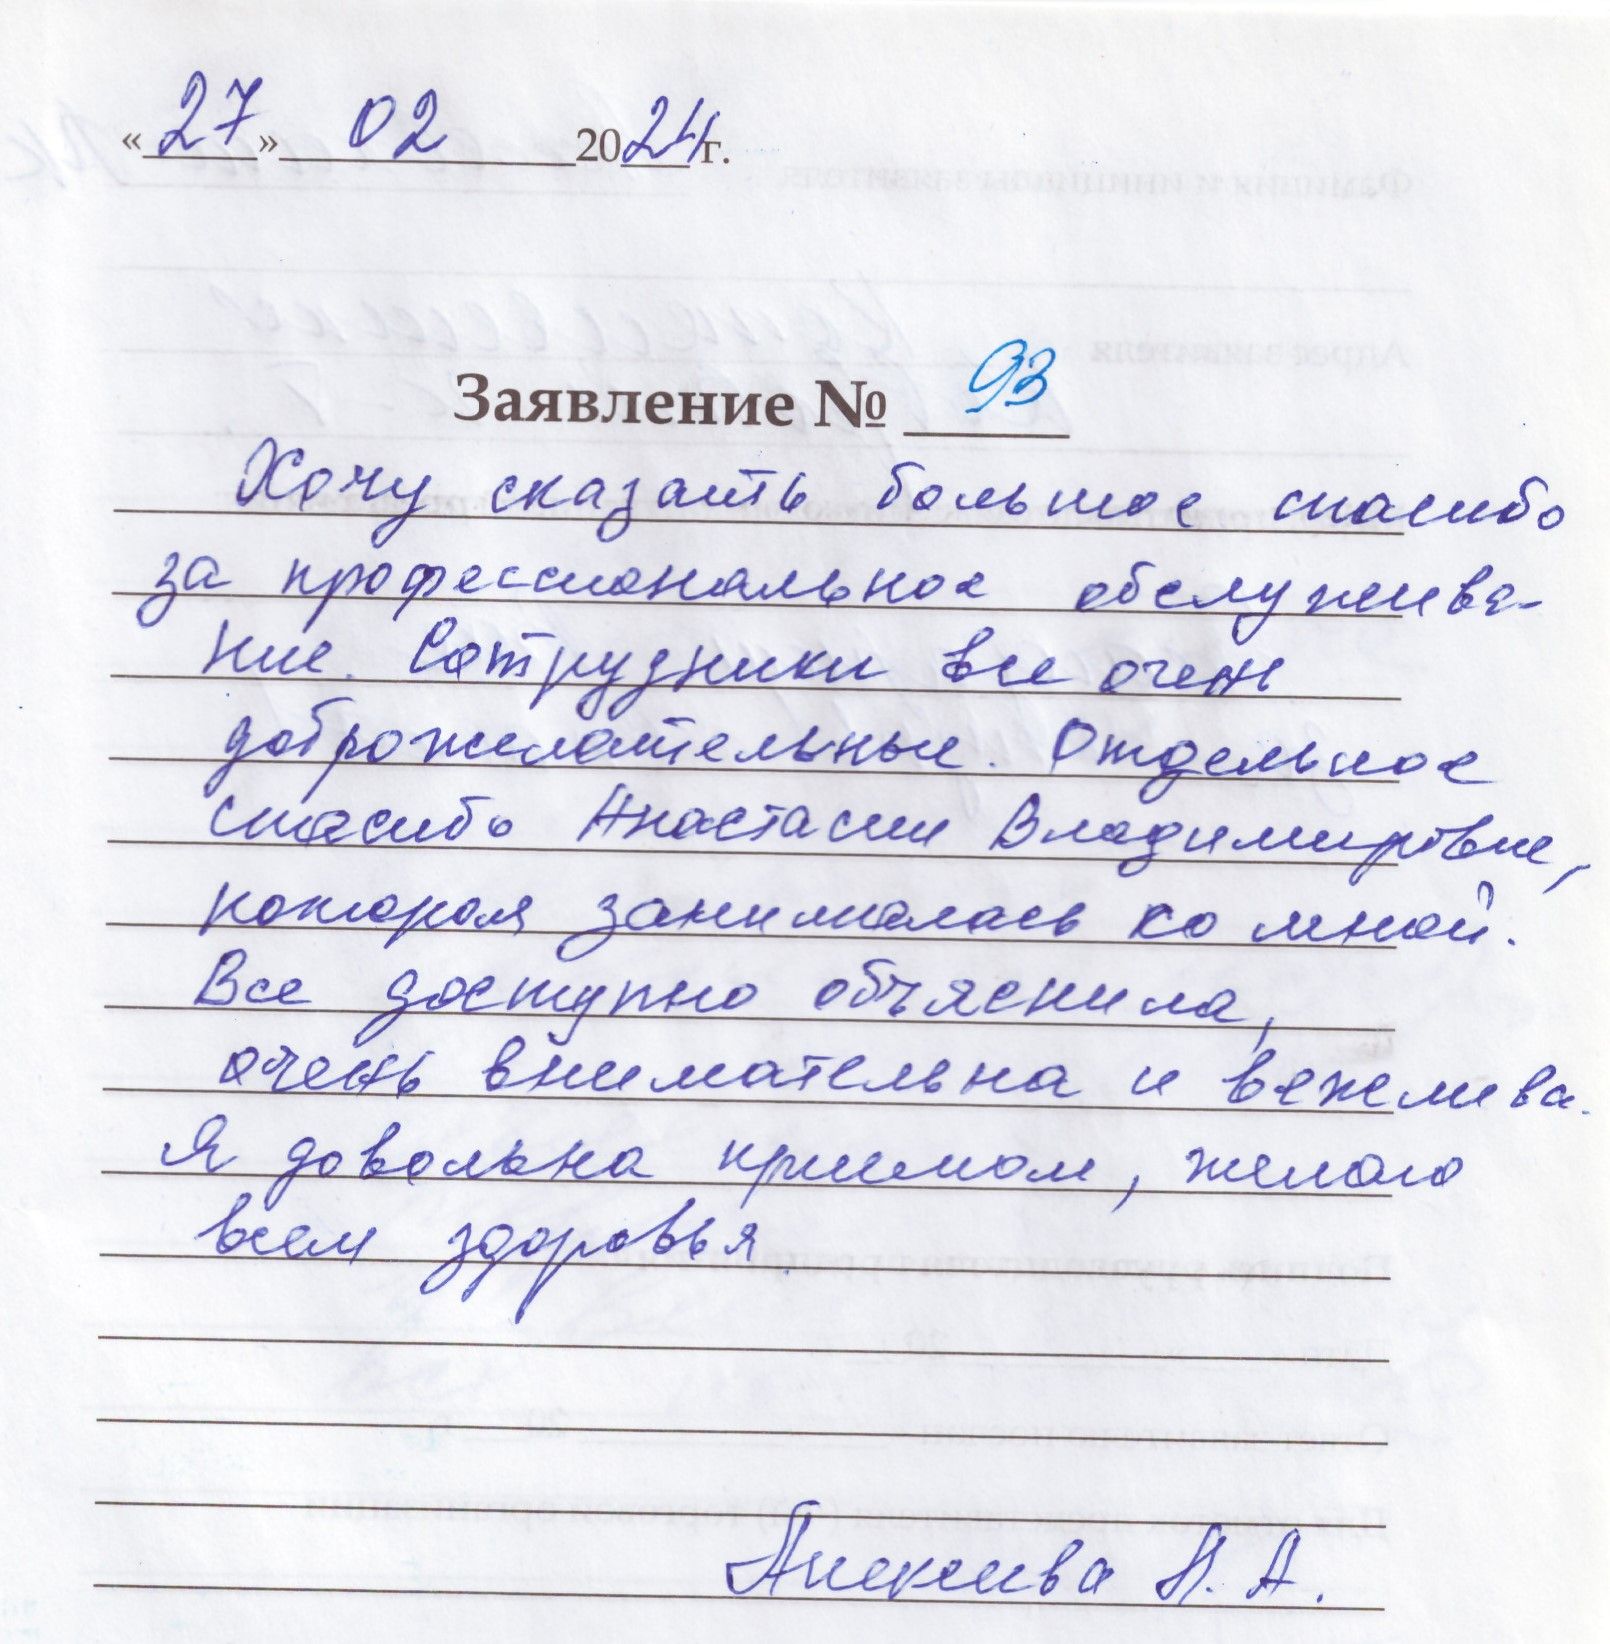 «27» 02 2024 г.
Заявление № 93
Хочу сказать большое спасибо
за профессиональное обслужива-
ние. Сотрудники все очень
доброжелательные. Отдельное
спасибо Анастасии Владимировне,
которая занималась со мной.
Все доступно объяснила,
очень внимательна и вежлива.
Я довольна приемом, желаю
всем здоровья.
Н. А.